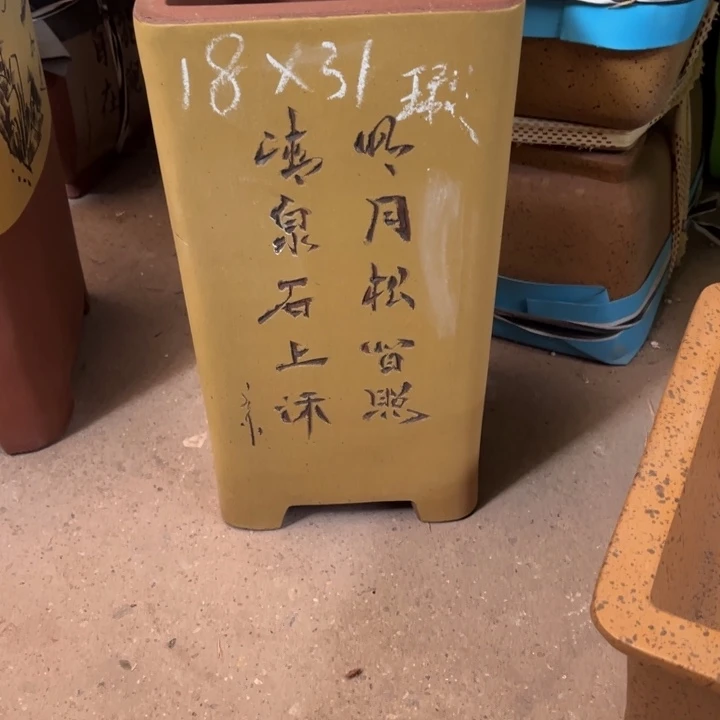 18×31
明月松间照
清泉石上流